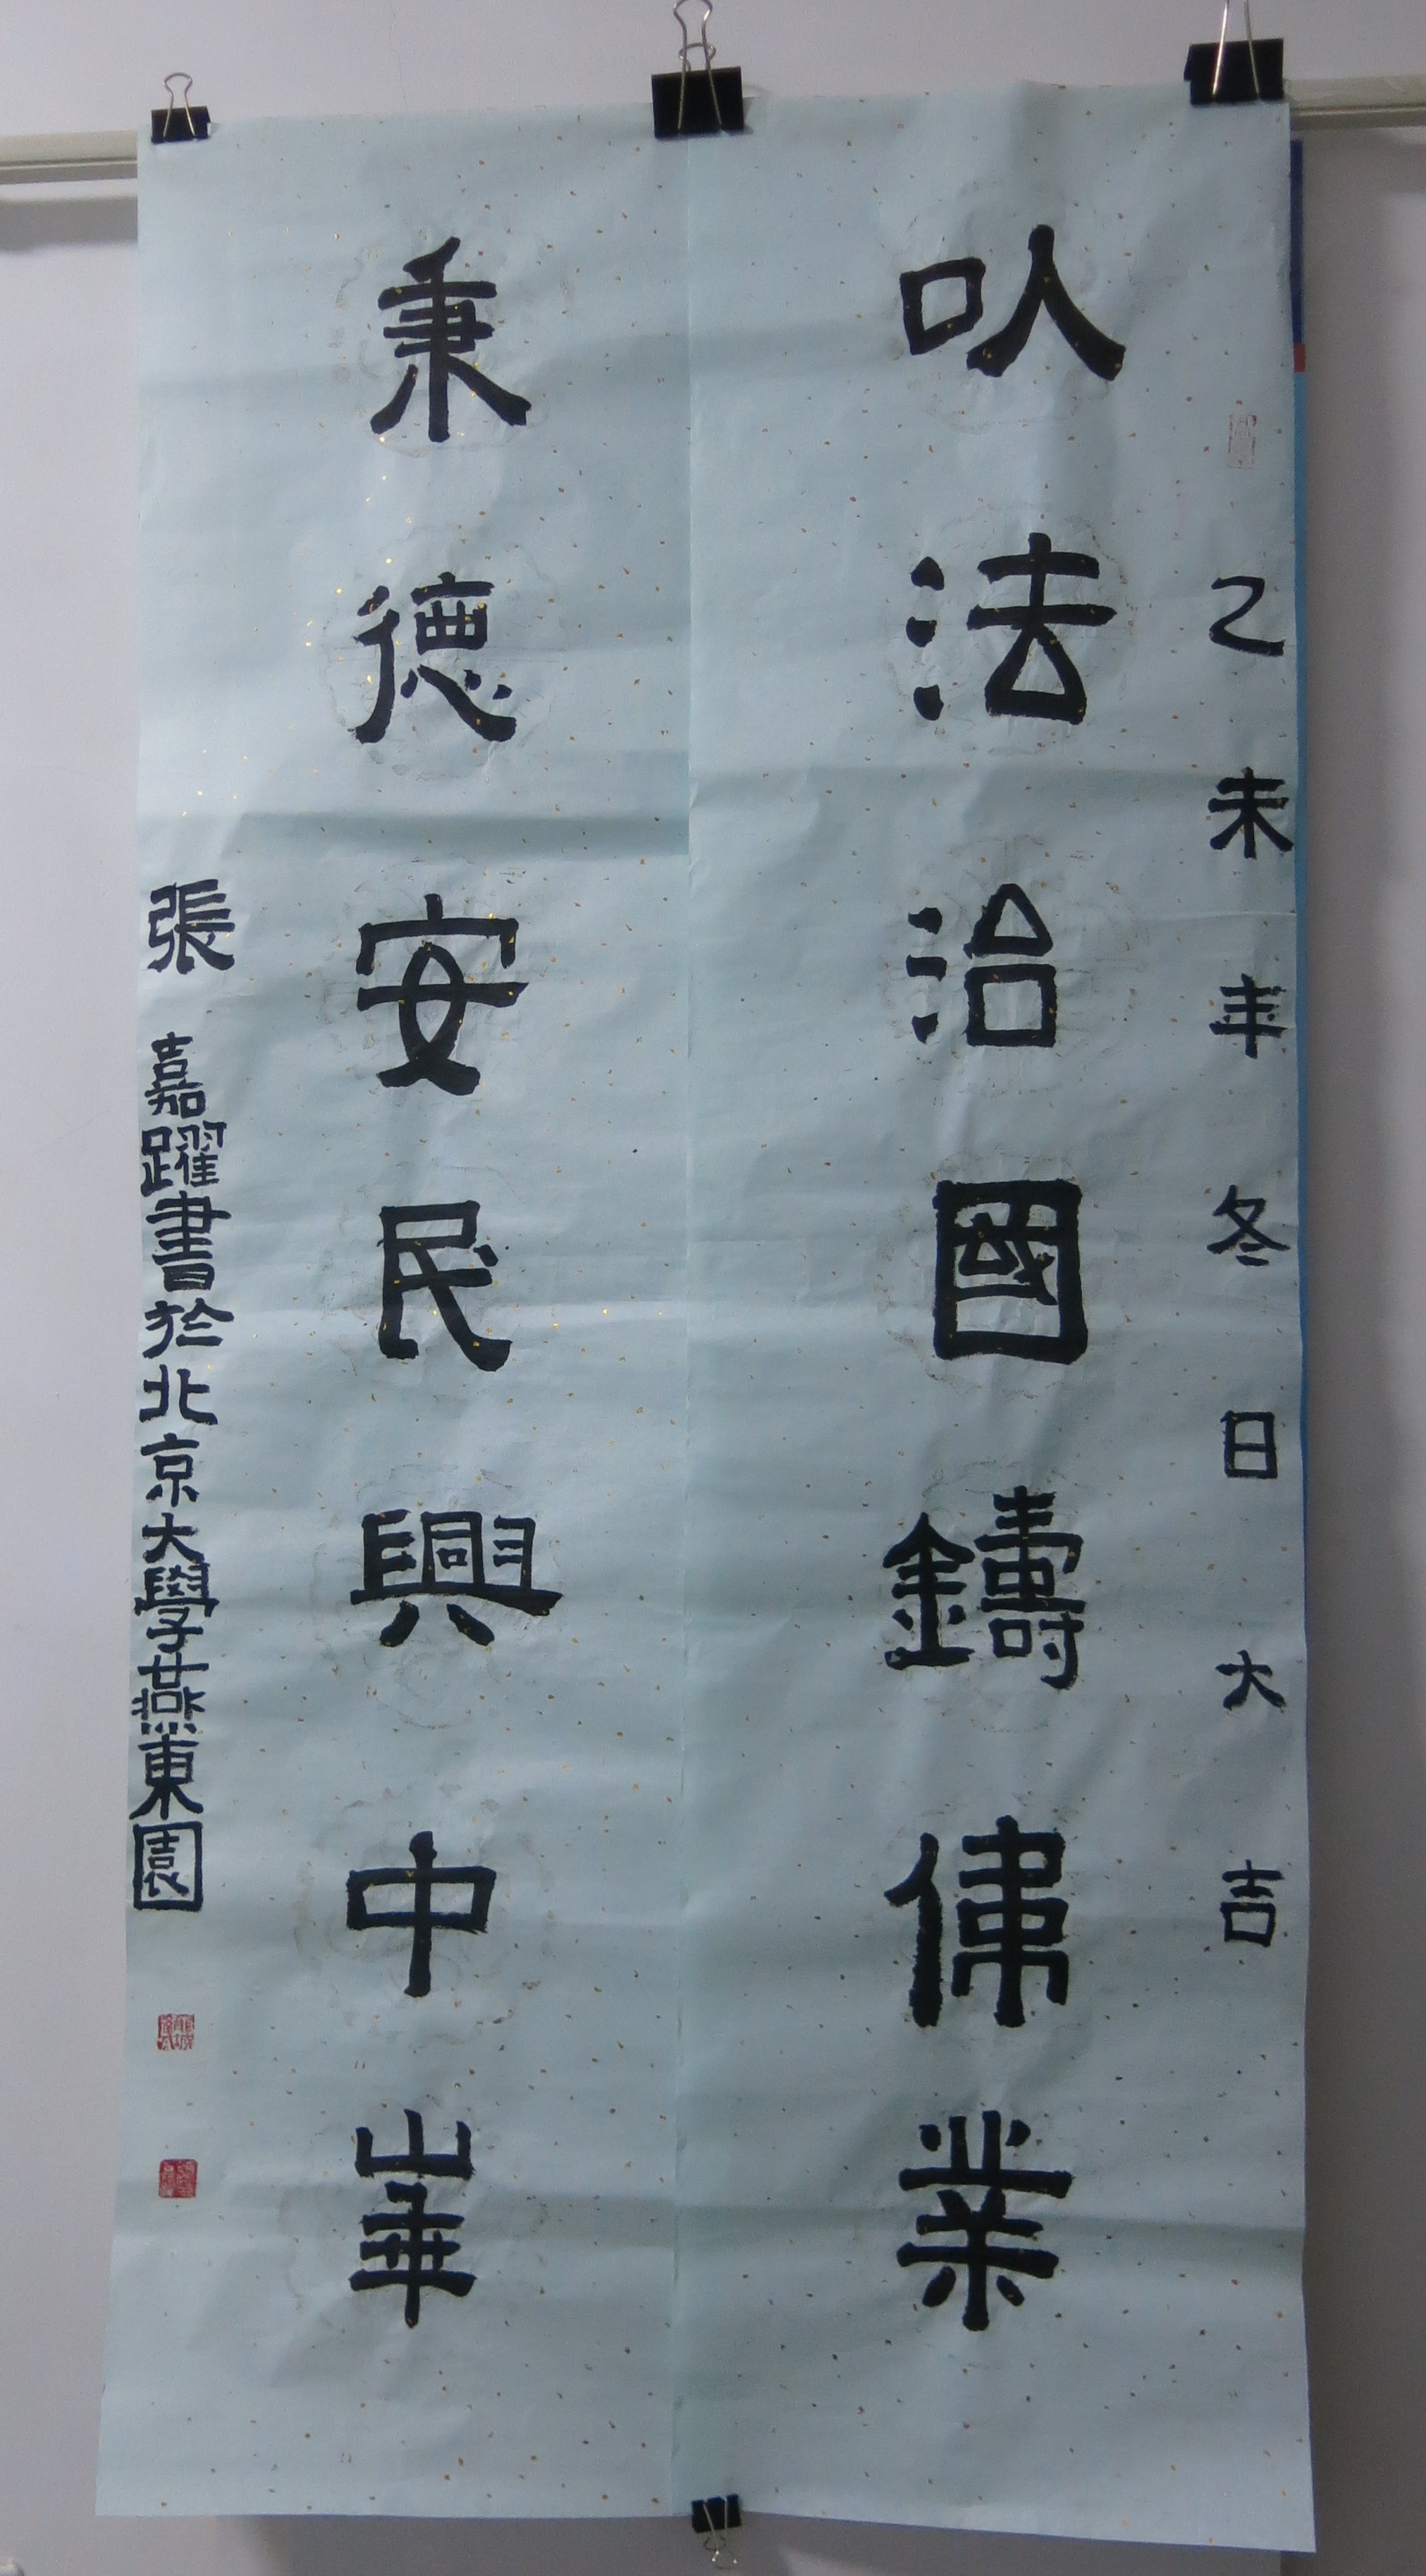 乙未年冬日大吉
以法治國鑄偉業
秉德安民興中華
張嘉躍書於北京大學燕東園